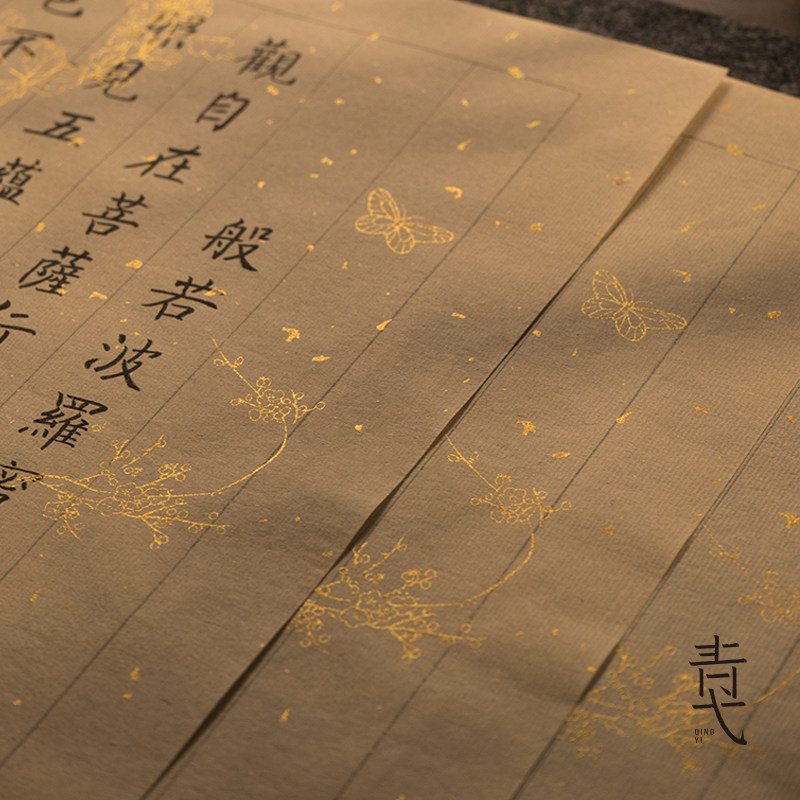 般若波羅
觀自在菩薩行
照見五蘊
不
青弋
QING
YI